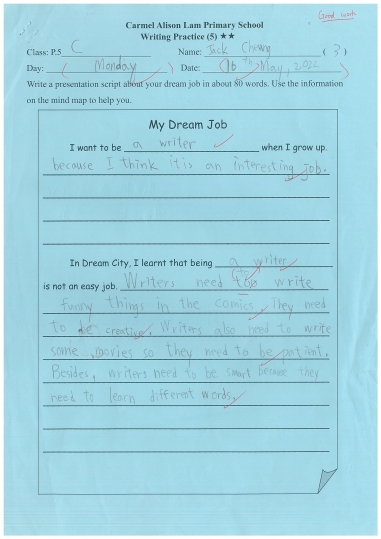 Good work
Carmel Alison Lam Primary School
Writing Practice (5) ★★
Class: P.5 C Name: Jack Cheung ( 3 )
Day: ( Monday ) Date: (16th May, 2022 )
Write a presentation script about your dream job in about 80 words. Use the information
on the mind map to help you.
My Dream Job
I want to be a writer when I grow up.
because I think it is an interesting job.
In Dream City, I learnt that being a writer
to
is not an easy job. Writers need two write
funny things in the comics. They need
to be creative. Writers also need to write
some movies so they need to be patient.
Besides, writers need to be smart because they
need to learn different words.